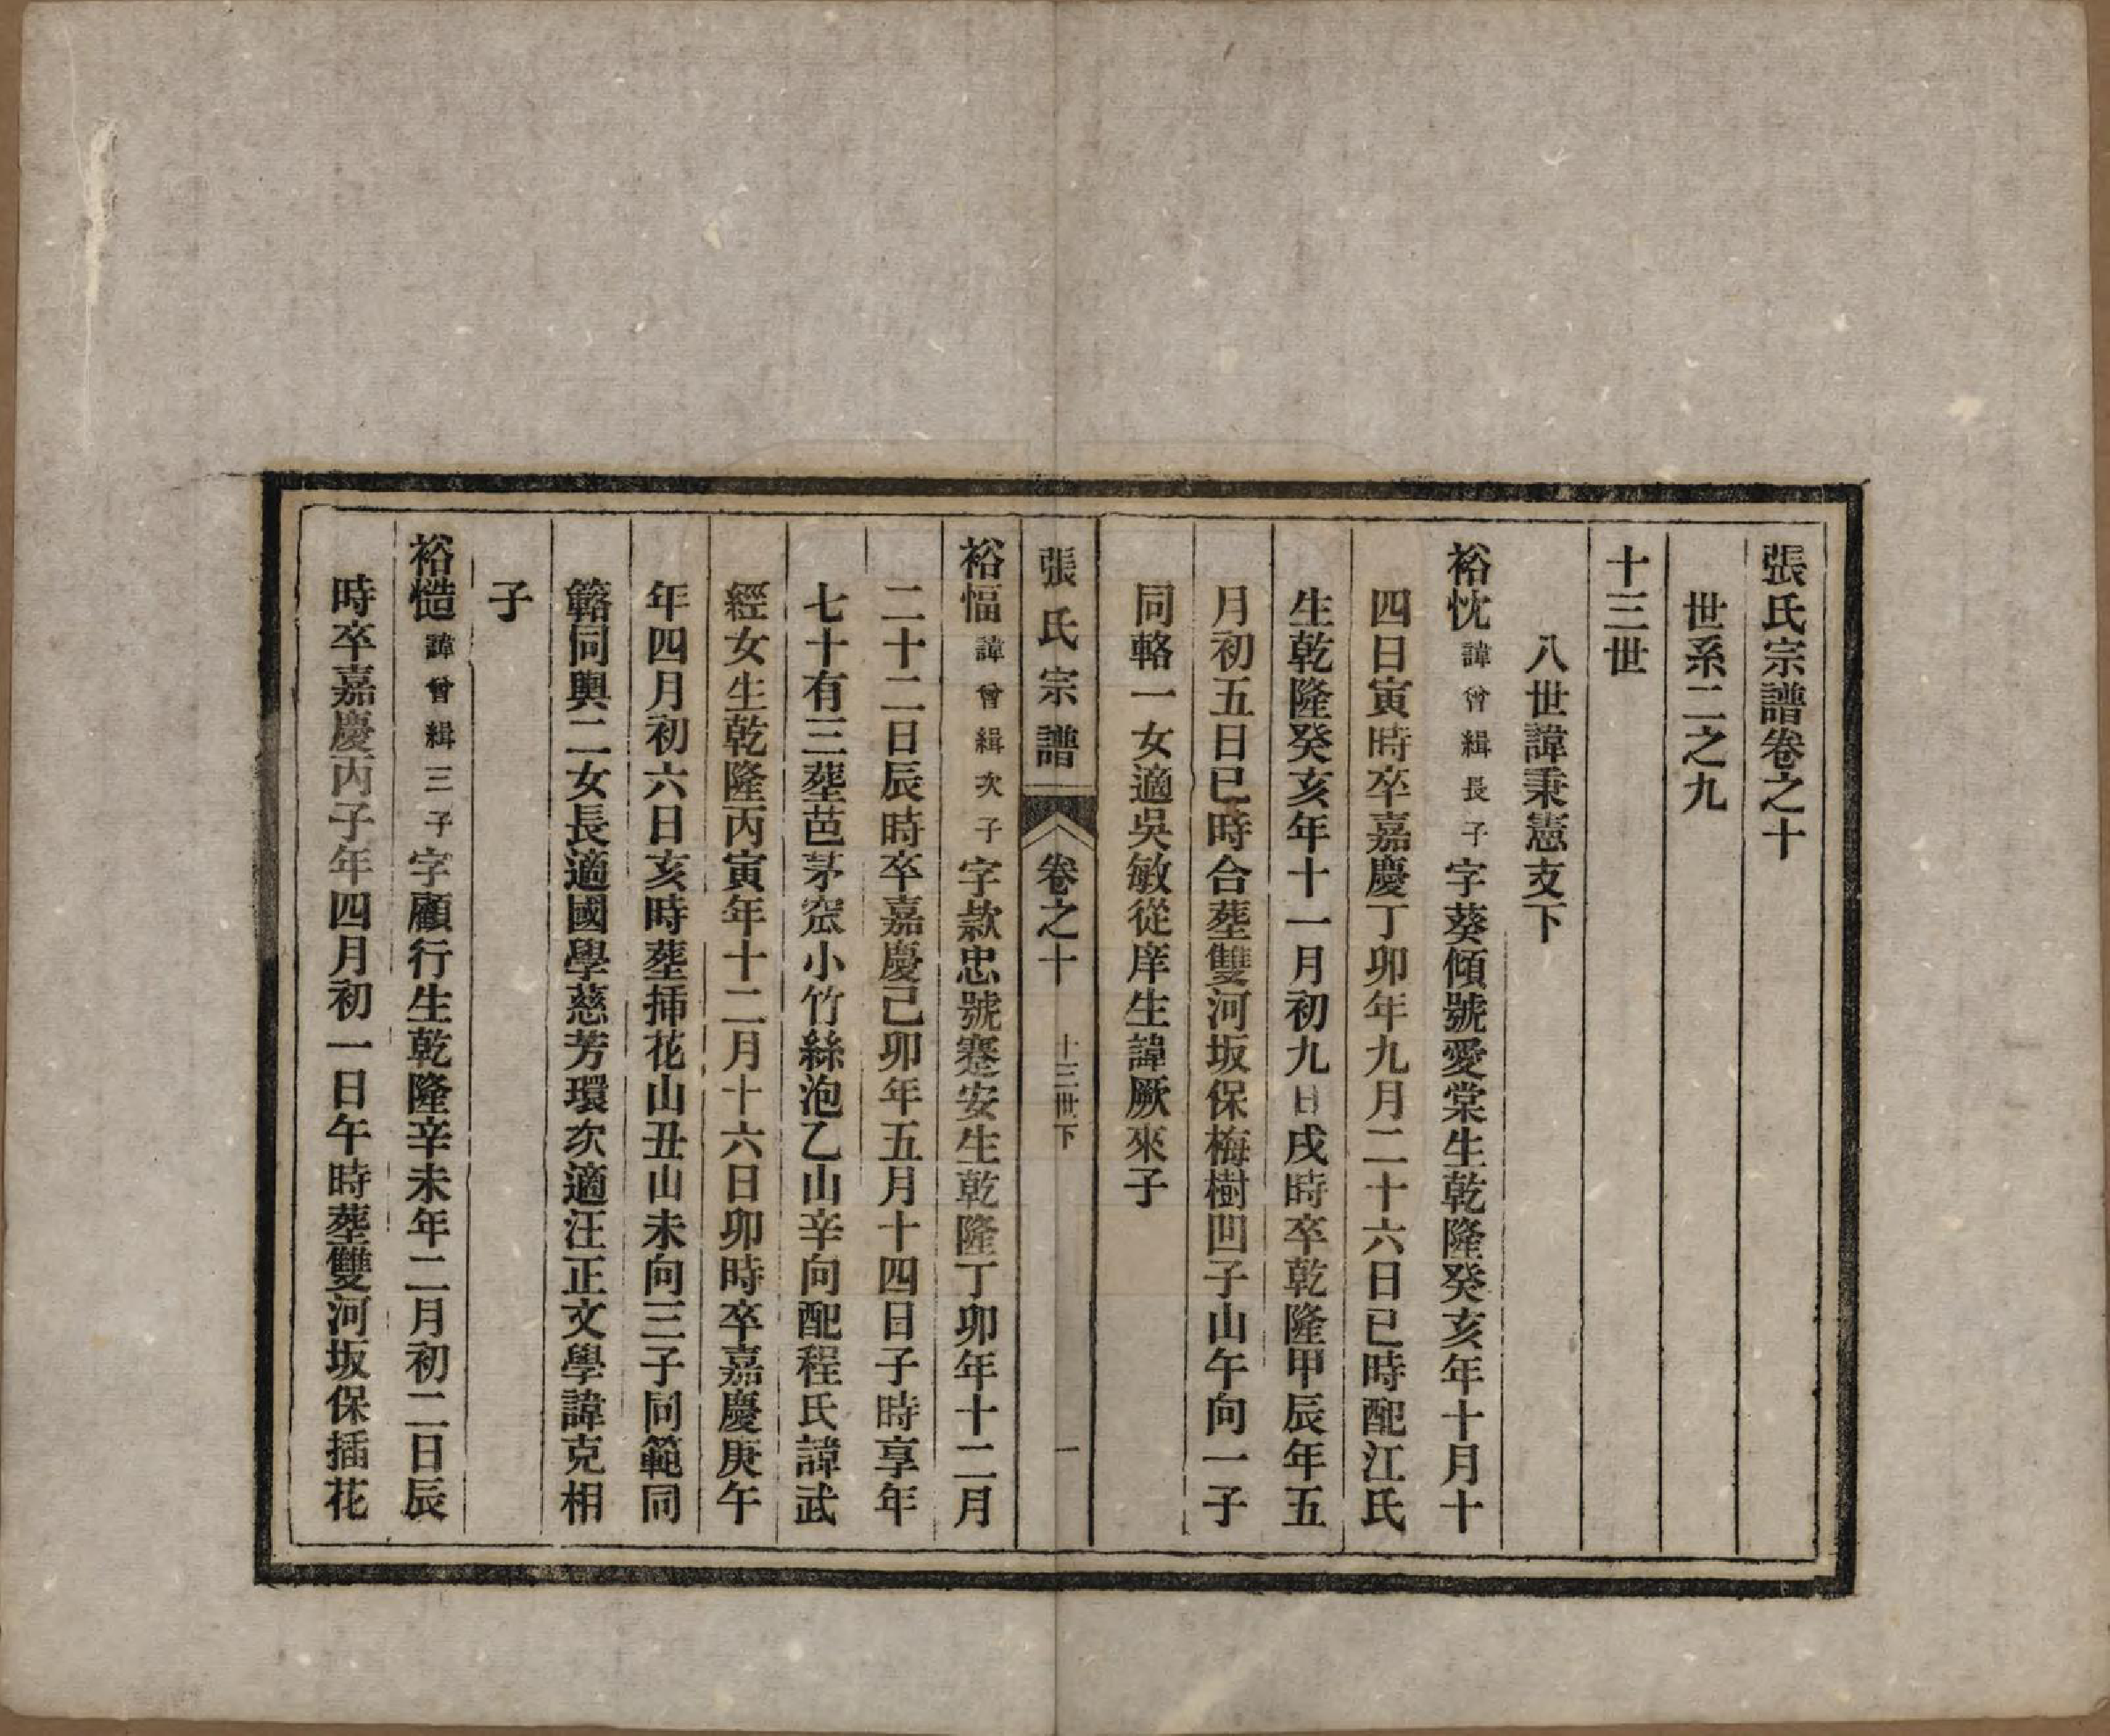 張氏宗譜卷之十
世系二之九
十三世
八世諱秉憲支下
裕忱諱曾緝長子字葵傾號愛棠生乾隆癸亥年十月十
四日寅時卒嘉慶丁卯年九月二十六日巳時配江氏
生乾隆癸亥年十一月初九日戌時卒乾隆甲辰年五
月初五日巳時合葬雙河坂保梅樹凹子山午向一子
同輅一女適吳敏從庠生諱厥來子
張氏宗譜 卷之十 十三世下 一
裕愊諱曾緝次子字款忠號蹇安生乾隆丁卯年十二月
二十二日辰時卒嘉慶己卯年五月十四日子時享年
七十有三葬芭茅窊小竹絲泡乙山辛向配程氏諱武
經女生乾隆丙寅年十二月十六日卯時卒嘉慶庚午
年四月初六日亥時葬揷花山丑山未向三子同範同
簵同輿二女長適國學慈芳環次適汪正文學諱克相
子
裕慥諱曾緝三子字顧行生乾隆辛未年二月初二日辰
時卒嘉慶丙子年四月初一日午時葬雙河坂保插花